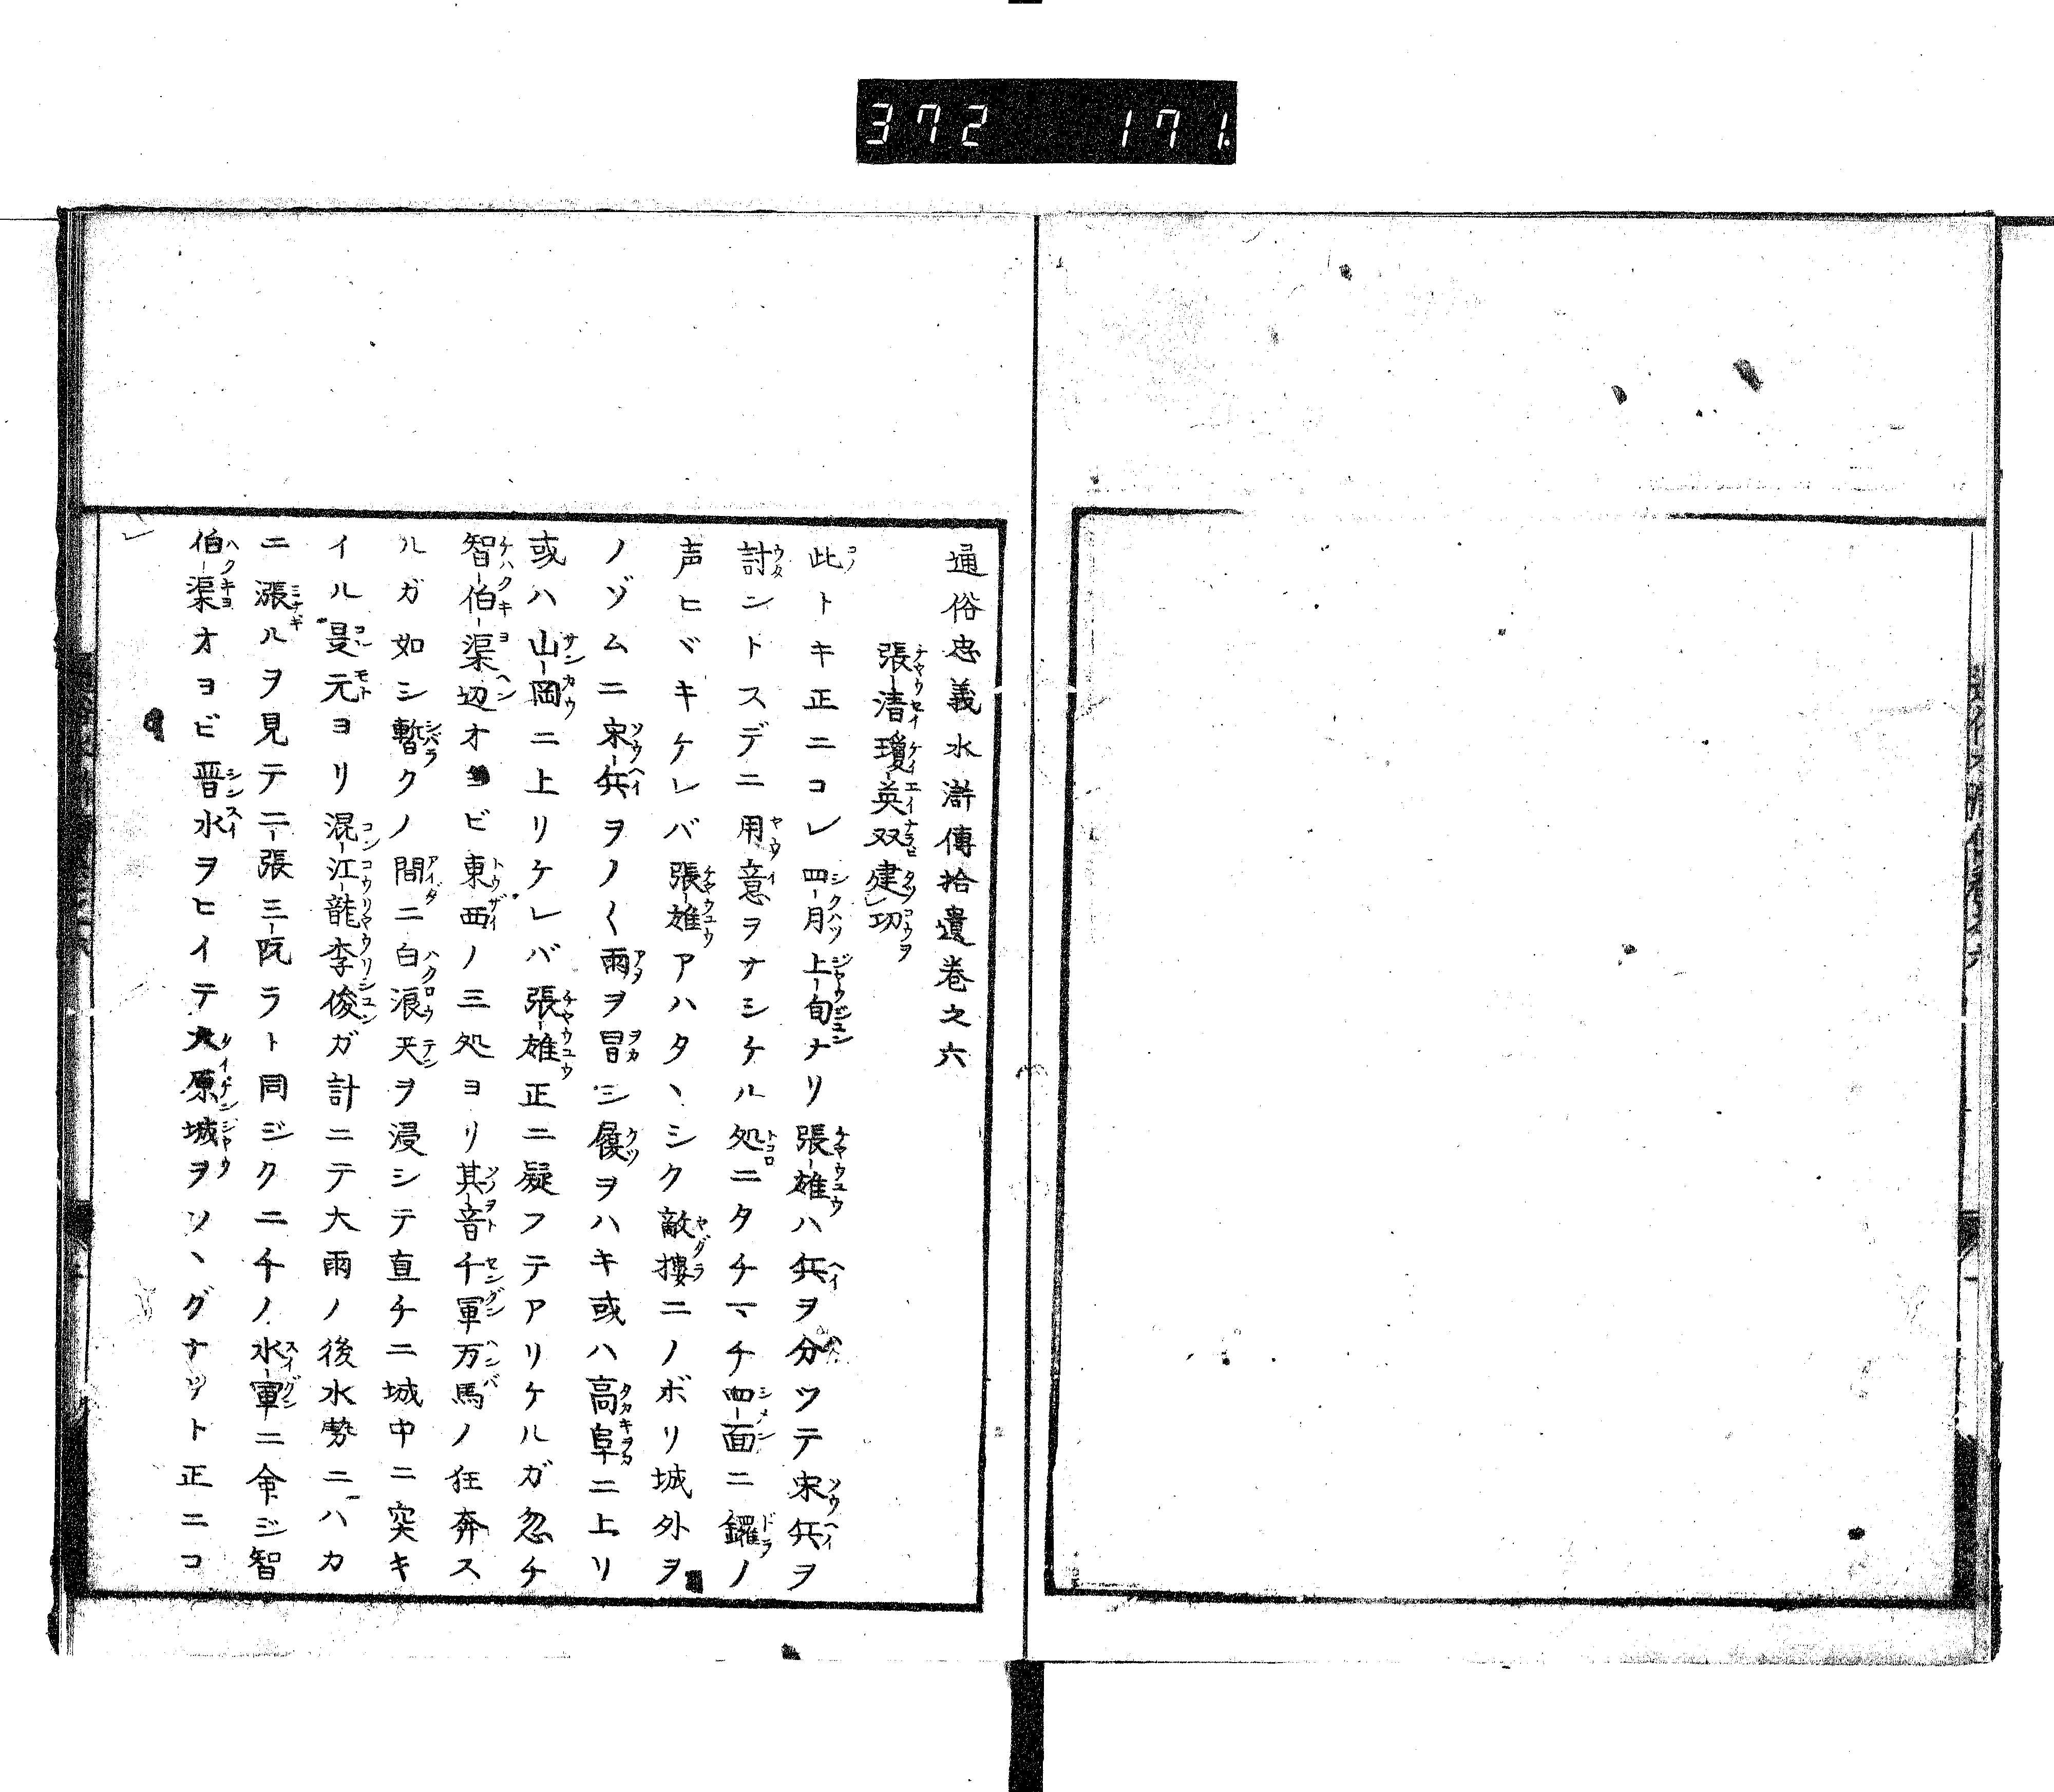 372 171
通俗忠義水滸傳拾遺卷之六
張清瓊英双建功
此トキ正ニコレ四月上旬ナリ張雄ハ兵ヲ分ツテ宋兵ヲ
討ントスデニ用意ヲナシケル処ニタチマチ四面ニ鑼ノ
声ヒヾキケレバ張雄アハタヽシク敵樓ニノボリ城外ヲ
ノゾムニ宋兵ヲノ〱雨ヲ冒シ屐ヲハキ或ハ高阜ニ上リ
或ハ山岡ニ上リケレバ張雄正ニ疑フテアリケルガ忽チ
智伯渠辺オヨビ東西ノ三処ヨリ其音千軍万馬ノ狂奔ス
ルガ如シ暫クノ間ニ白浪天ヲ浸シテ直チニ城中ニ突キ
イル是元ヨリ混江龍李俊ガ計ニテ大雨ノ後水勢ニハカ
ニ漲ルヲ見テ二張三阮ラト同ジクニチノ水軍ニ令ジ智
伯渠オヨビ晋水ヲヒイテ大原城ヲソヽグナツト正ニコ